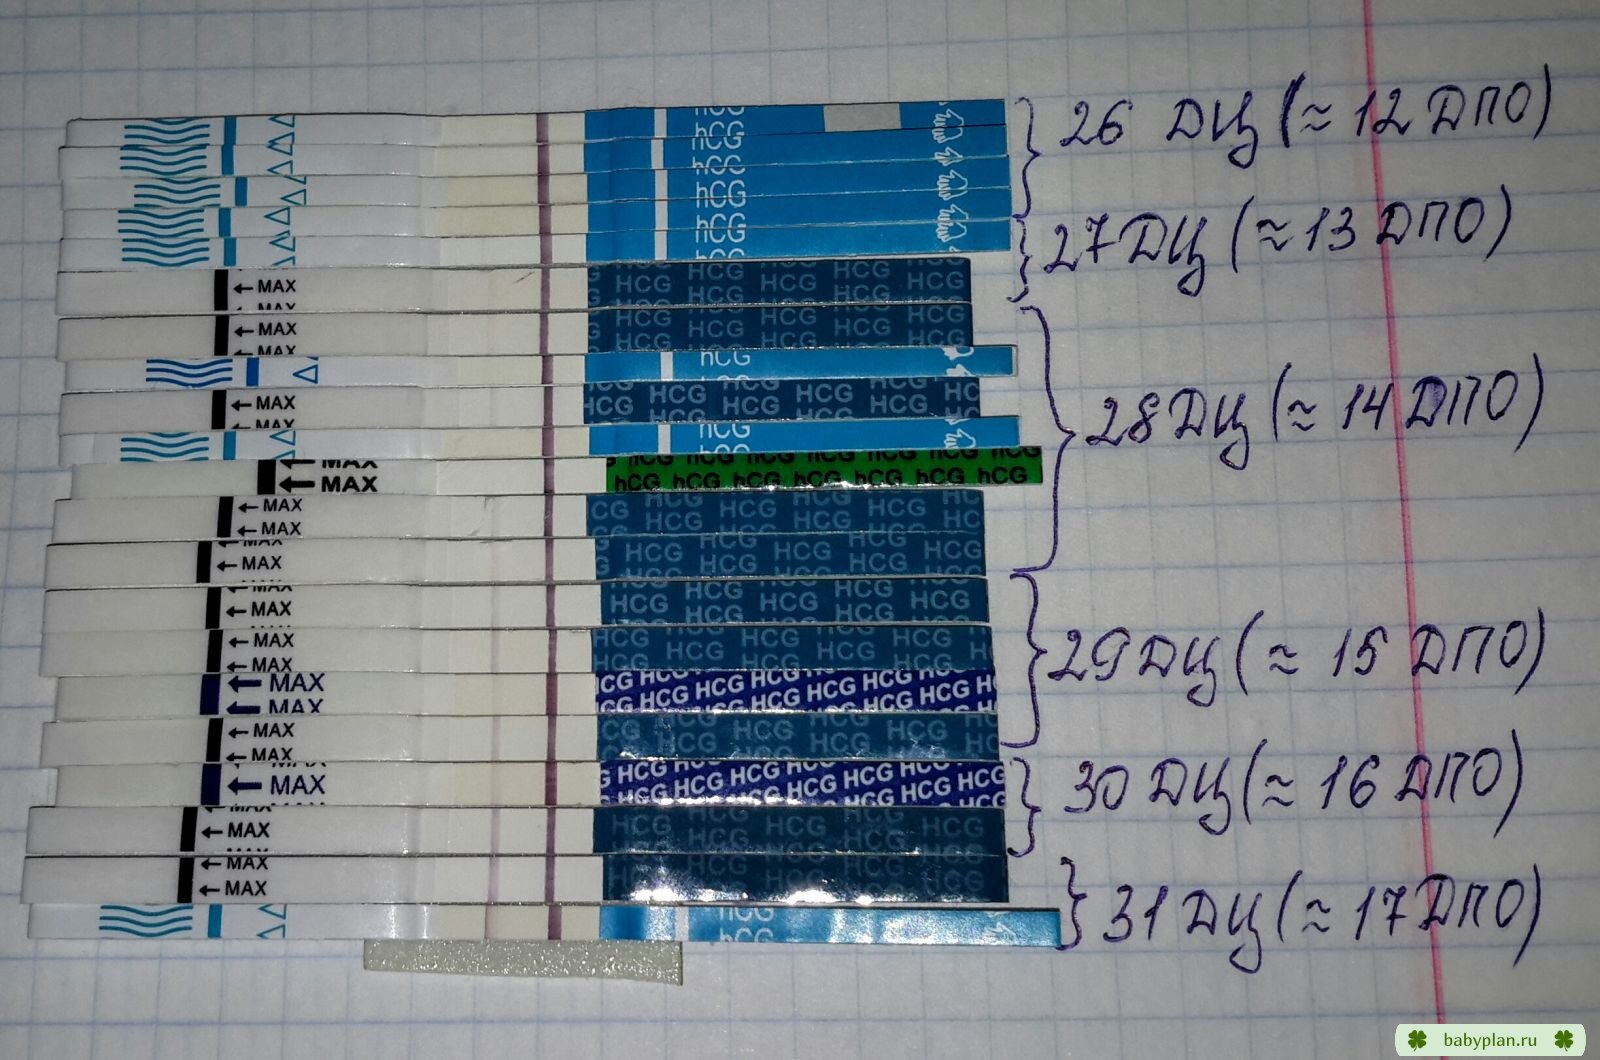 hCG
hCG
hCC
hCG
hCG
hCG
26 ДЦ (≈ 12 ДПО)
27 ДЦ (≈ 13 ДПО)
← MAX HCG HCG HCG
HCG HCG HCG HCG
← MAX HCG HCG HCG
← MAX
hCG
← MAX HCG HCG HCG HCG
28 ДЦ (≈ 14 ДПО)
hCG
← MAX hCG hCG hCG hCG hCG hCG
← MAX hCG hCG hCG hCG hCG hCG hCG
← MAX HCG HCG
← MAX HCG HCG
← MAX HCG HCG HCG HCG
← MAX HCG HCG HCG
← MAX HCG HCG HCG
← MAX HCG HCG HCG
29 ДЦ (≈ 15 ДПО)
← MAX HCG HCG HCG HCG HCG HCG
← MAX HCG HCG HCG HCG HCG HCG
← MAX HCG HCG
← MAX HCG HCG
← MAX HCG HCG HCG HCG HCG HCG
30 ДЦ (≈ 16 ДПО)
← MAX HCG HCG HCG
← MAX
← MAX
31 ДЦ (≈ 17 ДПО)
hCG
hCG
babyplan.ru